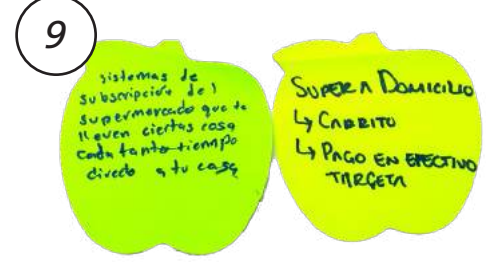 9
sistemas de
subscripción del
supermercado que te
lleven ciertas cosa
cada tanto tiempo
directo a tu casa
SUPER A DOMICILIO
↳ CARRITO
↳ PAGO EN EFECTIVO
TARGETA